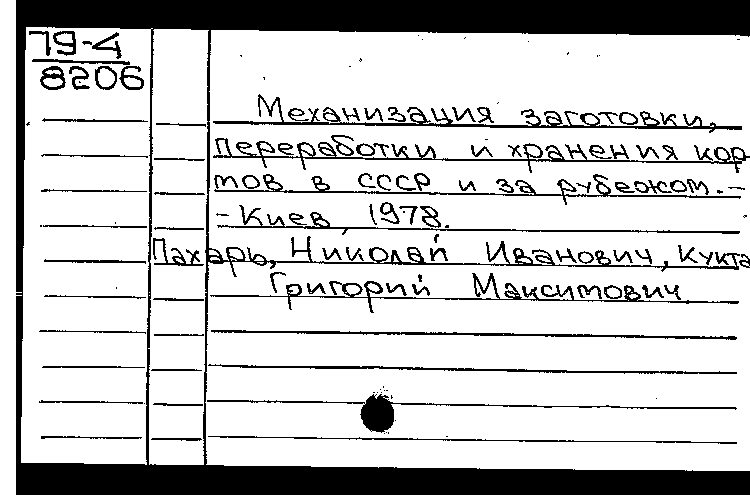 79-4
8206
Механизация заготовки,
переработки и хранения кор-
мов в СССР и за рубежом.-
- Киев, 1978.
Пахарь, Николай Иванович, Кукта
Григорий Максимович